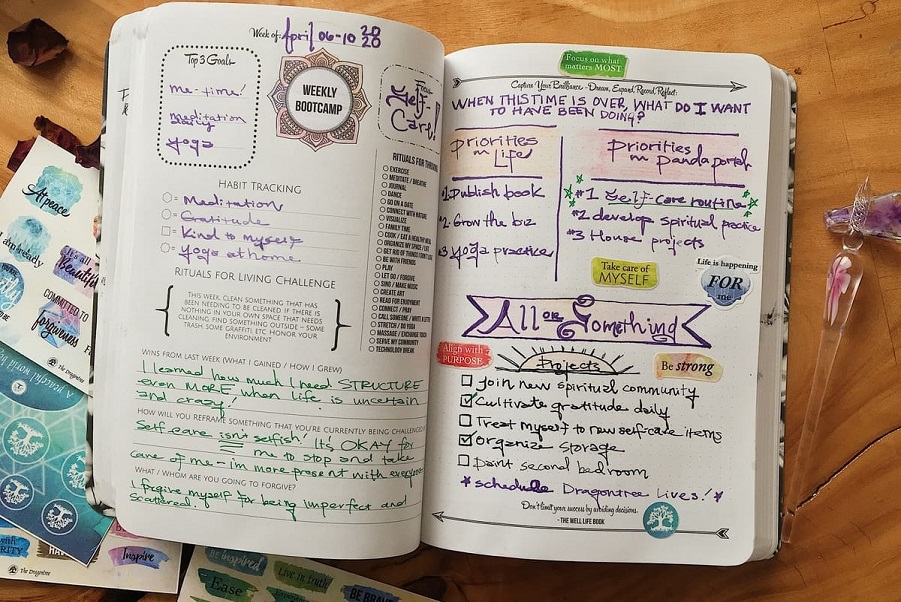 Week of: April 06-10 2020
Top 3 Goals
me-time!
meditation
Yoga
WEEKLY
BOOTCAMP
Self-
Care!
HABIT TRACKING
= Meditation
= Gratitude
= Kind to myself
= Yoga at home
RITUALS FOR LIVING CHALLENGE
THIS WEEK, CLEAN SOMETHING THAT HAS
BEEN NEEDING TO BE CLEANED IF THERE IS
NOTHING IN YOUR OWN SPACE THAT NEEDS
CLEANING FIND SOMETHING OUTSIDE – SOME
TRASH, SOME GRAFFITI, ETC HONOR YOUR
ENVIRONMENT
RITUALS FOR
EXERCISE
MEDITATE / BREATHE
JOURNAL
DANCE
GO ON A DATE
CONNECT WITH NATURE
VISUALIZE
FAMILY TIME
COOK / EAT A HEALTHY MEAL
ORGANIZE MY SPACE /
GET RID OF THINGS I DON'T
BE WITH FRIENDS
PLAY
LET GO / FORGIVE
SING / MAKE MUSIC
CREATE ART
READ FOR ENJOYMENT
CONNECT / PRAY
CALL SOMEONE / WRITE A
STRETCH / DO YOGA
MASSAGE / EXCHANGE TOUCH
SERVE MY COMMUNITY
TECHNOLOGY BREAK
WINS FROM LAST WEEK (WHAT I GAINED / HOW I GREW)
I learned how much I need STRUCTURE
even MORE when life is uncertain
and crazy!
HOW WILL YOU REFRAME SOMETHING THAT YOU'RE CURRENTLY BEING CHALLENGED
Self-care isn't selfish! It's OKAY for
me to stop and take
care of me – i'm more present with everyone
WHAT / WHOM ARE YOU GOING TO FORGIVE?
I forgive myself for being imperfect and
scattered.
Focus on what
matters MOST
Capture Your Brilliance - Dream, Expand, Record, Reflect:
WHEN THIS TIME IS OVER, WHAT DO I WANT
TO HAVE BEEN DOING?
Priorities
in Life
#1 Publish book
#2 Grow the biz
#3 Yoga practice
Priorities
in Pandaportal
#1 Self-care routine
#2 develop spiritual practice
#3 House projects
Take care of
MYSELF
Life is happening
FOR
me
All or Something
Align with
PURPOSE
Projects
Be strong
Join new spiritual community
Cultivate gratitude daily
Treat myself to new self-care items
Organize storage
Paint second bedroom
* schedule Dragontree Lives! *
Don't limit your success by avoiding decisions.
- THE WELL LIFE BOOK
At peace
I am already
it's all
Beautiful
COMMITTED TO
forgiveness
The Dragontree
A peaceful world
Inspire
The Dragontree
Be inspired
Live in truth
Ease
BE BRAVE